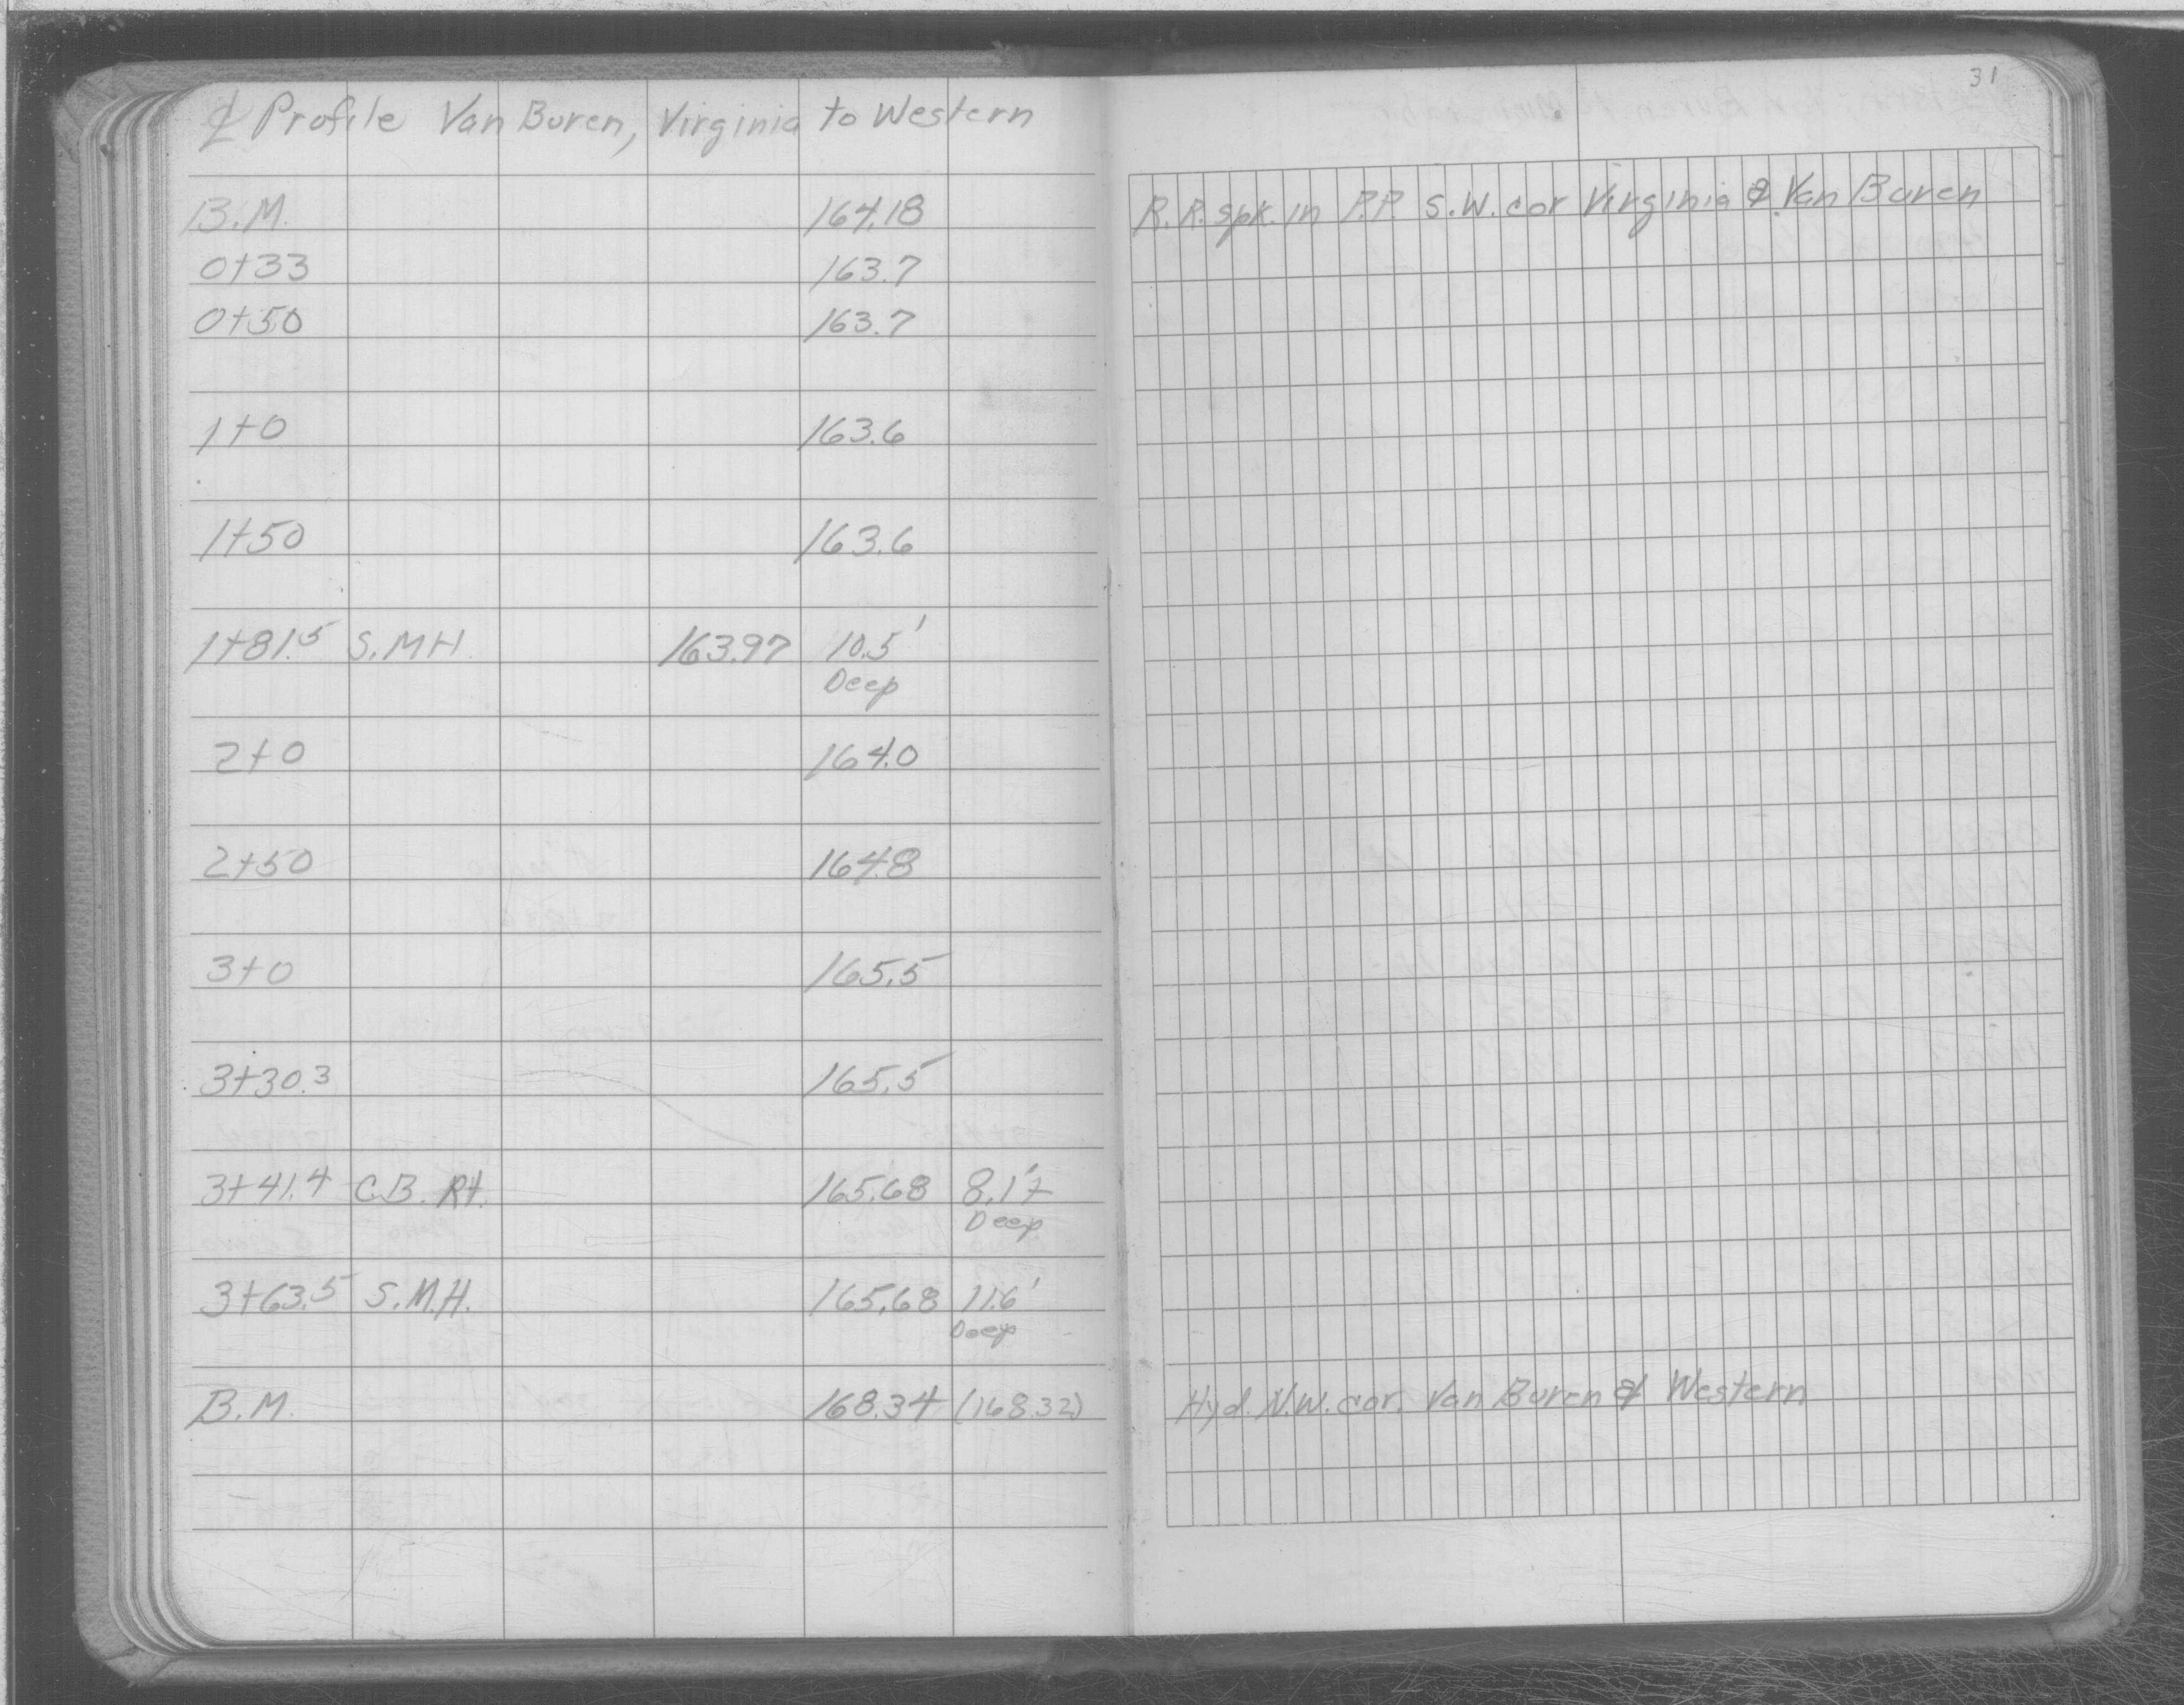 31
℄ Profile Van Buren, Virginia to Western
B.M. 164.18 R.R. spk. in P.P. S.W. cor Virginia & Van Buren
0+33 163.7
0+50 163.7
1+0 163.6
1+50 163.6
1+81.5 S.MH. 163.97 10.5'
Deep
2+0 164.0
2+50 164.8
3+0 165.5
3+30.3 165.5
3+41.4 C.B. Rt. 165.68 8.1'±
Deep
3+63.5 S.M.H. 165.68 11.6'
Deep
B.M. 168.34 (168.32) Hyd. N.W. cor. Van Buren & Western